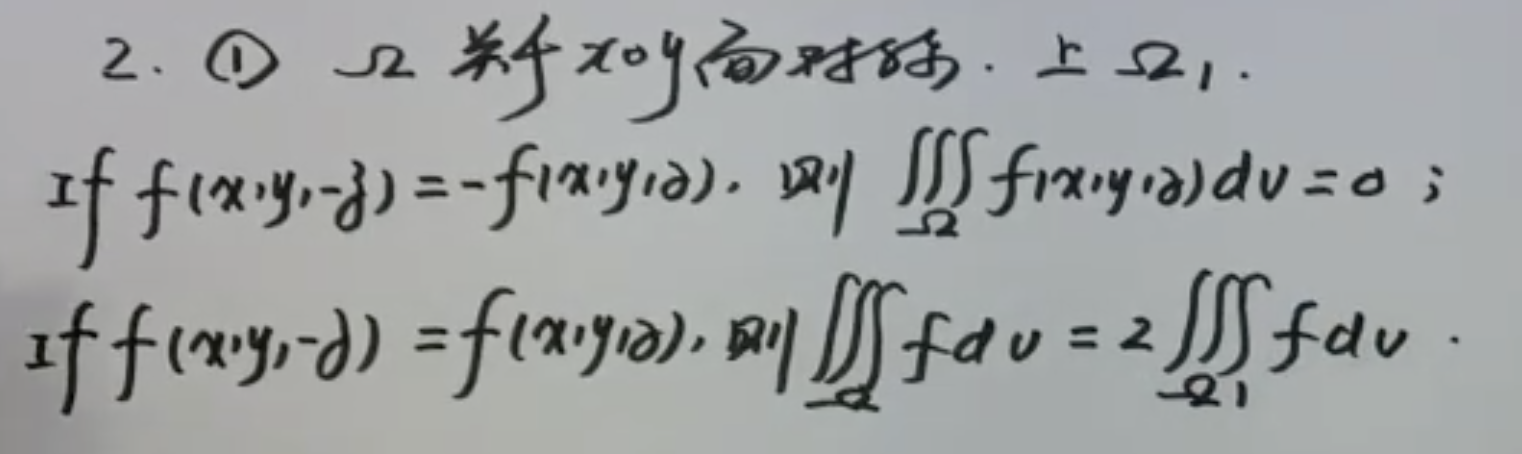 2. ① Ω 关于 xoy 面对称. 上 Ω₁.
If f(x,y,-z) = -f(x,y,z). 则 ∭_Ω f(x,y,z)dv = 0 ;
If f(x,y,-z) = f(x,y,z), 则 ∭_Ω f dv = 2∭_Ω₁ f dv .